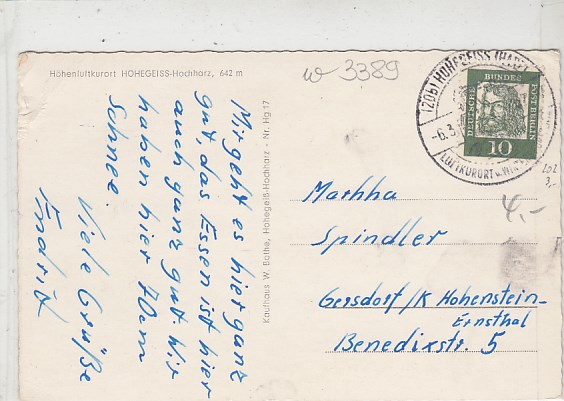 Höhenluftkurort HOHEGEISS-Hochharz, 642 m
w 3389
Mir geht es hier ganz
gut, das Essen ist hier
auch ganz gut. Wir
haben hier 70cm
Schnee.
Viele Grüße
Kaufhaus W. Bothe, Hohegeiß-Hochharz - Nr. Hg 17
(20b) HOHEGEISS (HARZ)
-6.3.
LUFTKURORT u. WIN
DEUTSCHE
BUNDES
POST BERLIN
10
4,-
Martha
Spindler
Gersdorf/K Hohenstein-
Ernsthal
Benedixstr. 5